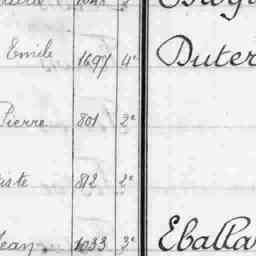 Emile 1697 4e Duter
Pierre 801 2e
iste 812 2e
Jean 1033 3e Eballar